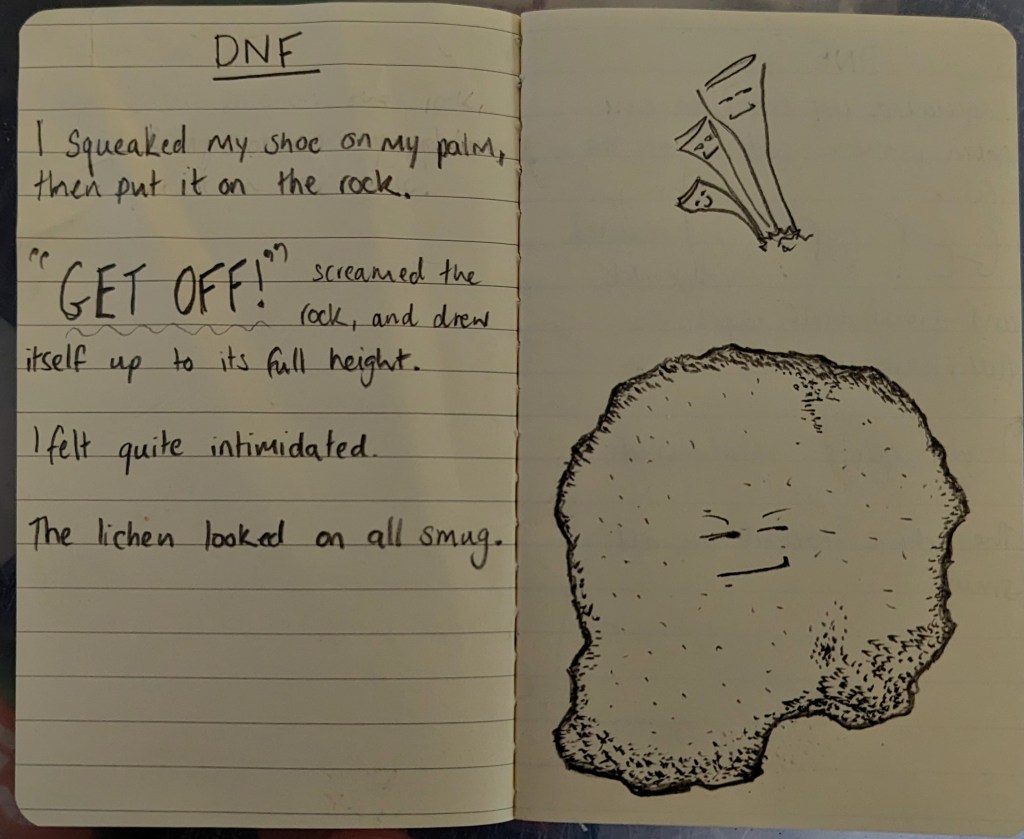 DNF
I squeaked my shoe on my palm,
then put it on the rock.
"GET OFF!" screamed the
rock, and drew
itself up to its full height.
I felt quite intimidated.
The lichen looked on all smug.